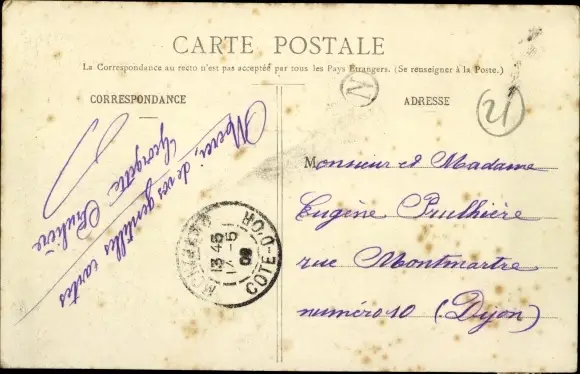 CARTE POSTALE
La Correspondance au recto n'est pas acceptée par tous les Pays Étrangers. (Se renseigner à la Poste.)
CORRESPONDANCE
ADRESSE
N
21
Merci, de vos gentilles cartes
Georgette
Monsieur et Madame
Eugène Prulhière
rue Montmartre
numéro 10 (Dijon)
13 45
17 - 5
CÔTE-D'OR